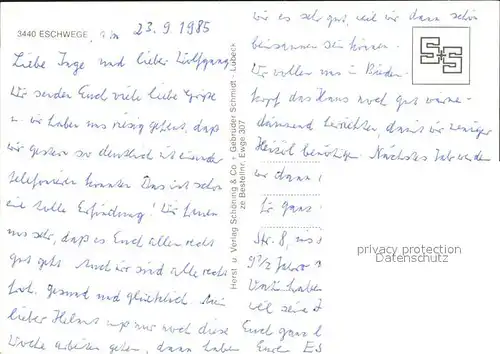 3440 ESCHWEGE, am 23.9.1985
Liebe Inge und lieber Wolfgang
Wir senden Euch viele liebe Grüße
u. wir haben uns riesig gefreut, daß
wir gestern so deutlich miteinander
telefonieren konnten. Das ist schon
eine tolle Erfindung! Wir freuen
uns sehr, daß es Euch allen recht
gut geht. Auch wir sind alle recht
froh, gesund und glücklich. Mein
lieber Helmut muß nur noch diese
Woche arbeiten gehen, dann haben
wir es sehr gut, weil wir dann schön
beisammen sein können.
Wir wollen uns in Bieden-
kopf das Haus noch gut wärme-
dämmend herrichten, damit wir weniger
Heizöl benötigen. Nächstes Jahr werden
wir dann
Ihr ganz
Str. 8, uns
9 1/2 Jahre
haben
weil seine
Euch ganz
Eure
Horst u. Verlag Schöning & Co + Gebrüder Schmidt - Lübeck
ze Bestellnr. Ewge 307
S+S
privacy protection
Datenschutz